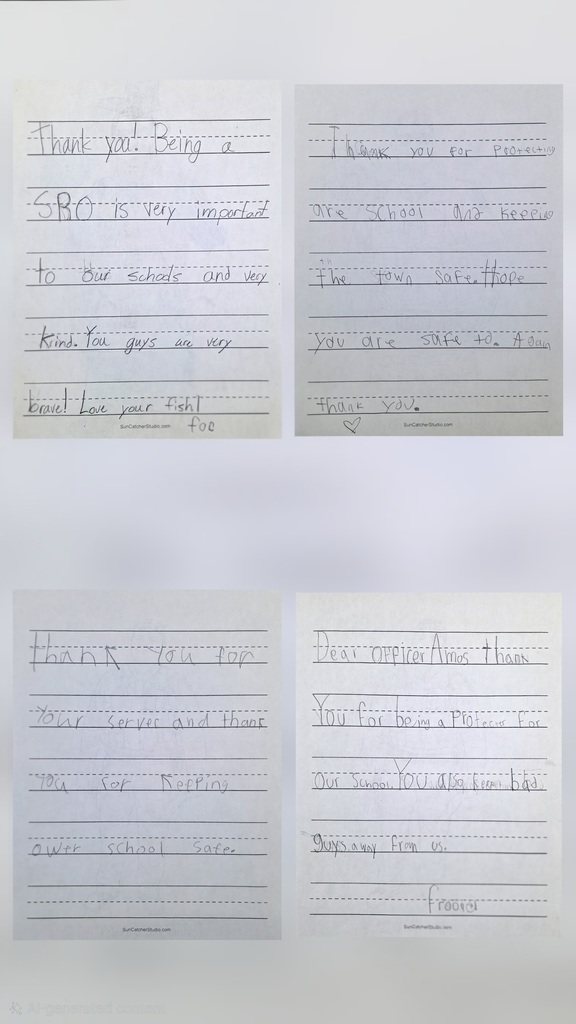 Thank you! Being a
SRO is very important
to our schools and very
kind. You guys are very
brave! Love your fish!
SunCatcherStudio.com
Thank you for Protecting
are school and keeping
the town safe. I hope
you are safe to. Again
thank you.
SunCatcherStudio.com
thank you for
Your server and thank
you for keeping
ower school safe.
SunCatcherStudio.com
Dear officer Amos thank
You for being a Protecter For
Our School. You also keep bad
guys away from us.
SunCatcherStudio.com
AI-generated content